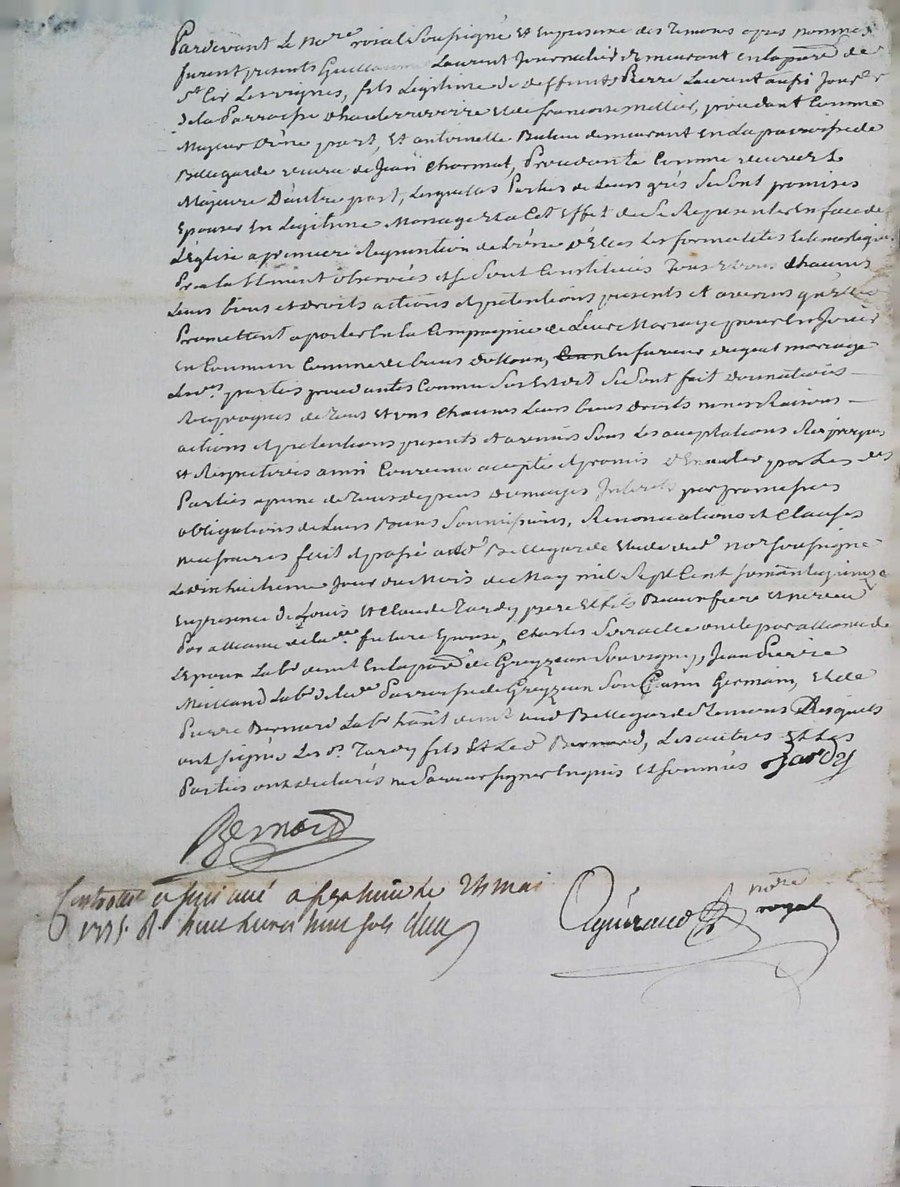 Pardevant Le No.re roial Soussigné Et En presence des Temoins apres nommés
furent presents Guillaume Laurent Journalier demeurant en la par.se de
St Cir Les vignes, fils Légitime de deffunts Pierre Laurent aussi Jour.er
de la Parroisse Et de francoise mellier, procedant Comme
Majeur d'une part, Et antoinette demeurant En La parroisse de
Bellegarde veuve de Jean Chormat, Procedante Comme veuve Et
Majeure D'autre part, Lesquelles Parties de Leurs grés Se Sont promises
Epouser En Legitime Mariage Et a Cet Effet de Se Representer En face de
L'église a premiere Requisition de L'une d'Elles Les formalités
Prealablement observées et Se Sont Constitués Tous Et uns Chacuns
Leurs biens et Droits actions et pretentions presents Et avenirs qu'ils
Promettent aporter En La Compagnie de Leur Mariage pour En Jouir
En Commun Comme de biens En faveur duquel mariage
Lesd.es parties procedantes Comme Sus Est dit Se Sont fait donnations
Reciproques de Tous Et uns Chacuns Leurs biens Droits noms Raisons
actions et pretentions presents Et avenirs Sous Les acceptations Reciproques
Et Respectives ainsi Convenu accepté et promis par Les d.es
Parties a peine de Tous depens Domages Interets par promesses
obligations de Leurs Biens Soumissions, Renonciations et Clauses
necessaires fait et passé aud.t Bellegarde Etude dud.t No.re Soussigné
Le vint huitieme Jour du Mois de May mil Sept Cent Soixante quinze
En presence de Louis Et Claude Tardy pere Et fils Beaufrere et neveu
Par alliance de lad.te future Epouse, Charles oncle par alliance de
L'Epoux Lab.r dem.t En la par.se de Grezieu Souvigny, Jean Pierre
Lab.r de lad.te Parroisse de Grezieu Son Cousin Germain, Et de
Pierre Bernard Lab.r dem.t aud.t Bellegarde Temoins Desquels
ont Signés Les d.s Tardy fils Et Le d.t Bernard, Les autres Et Les
Parties ont declarés ne Savoir Signer Enquis Et Sommés Tardy
Bernard
notre
royal
1775 R. huit Livres huit Sols